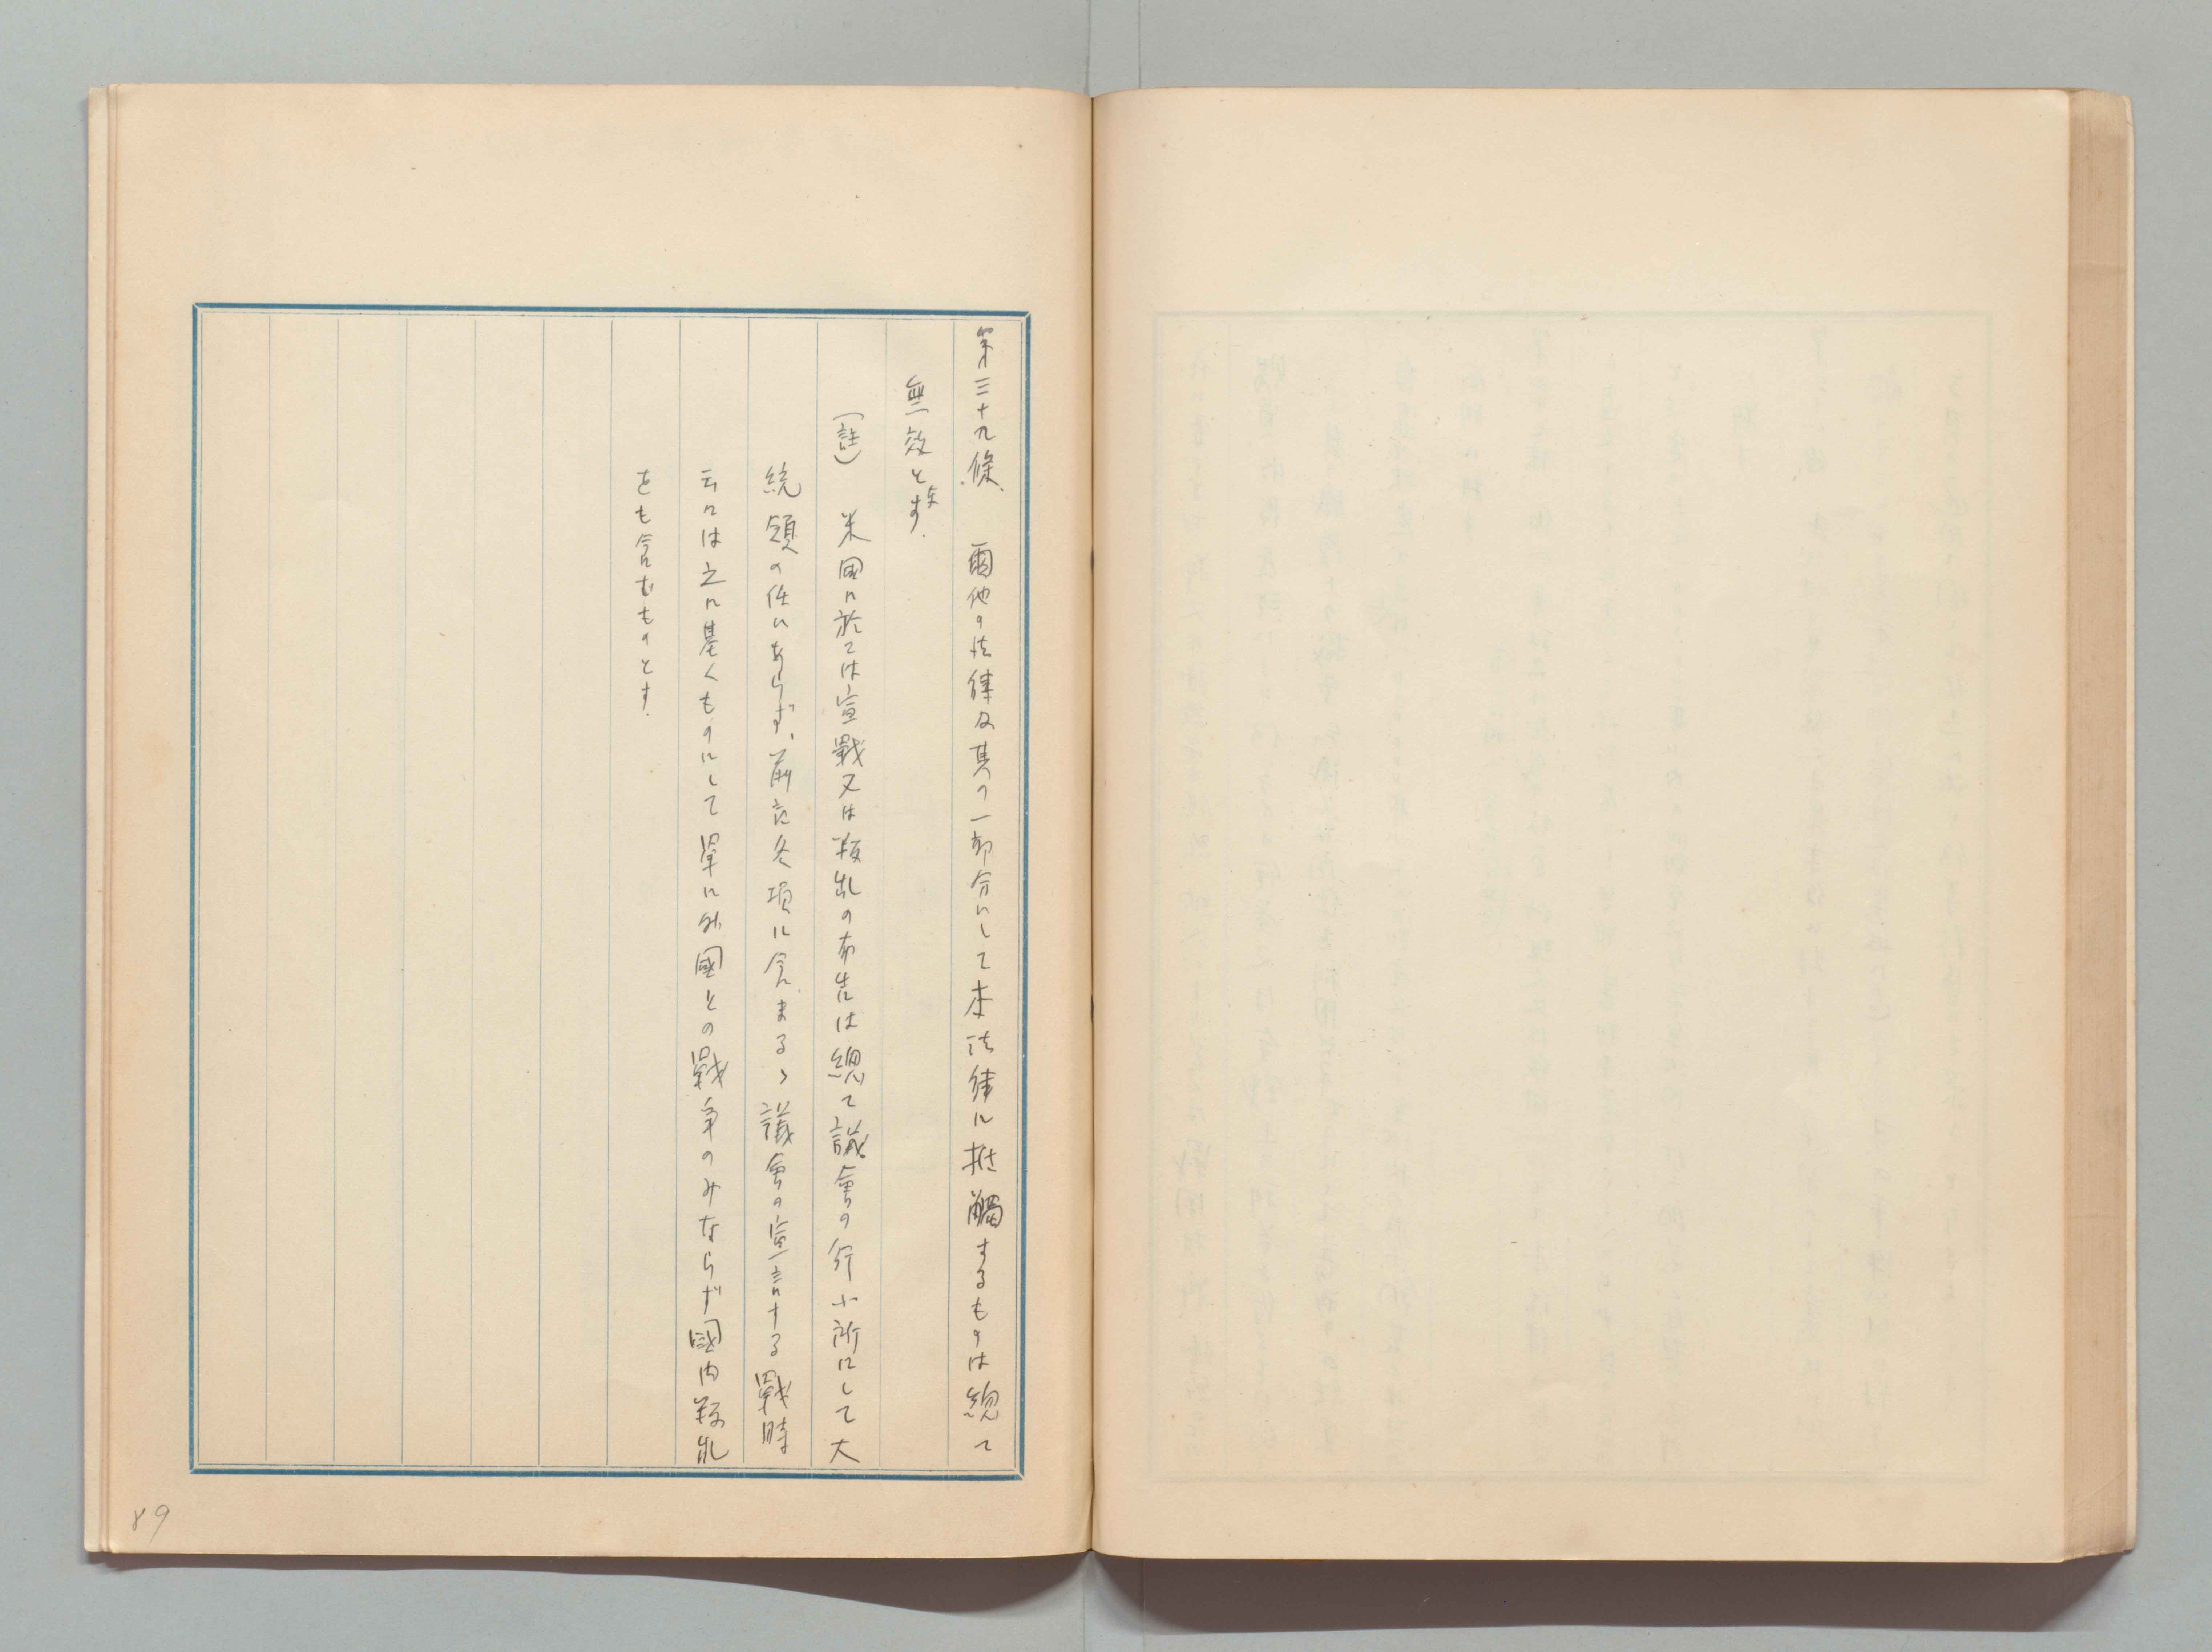 第三十九條　爾他の法律及其の一部分にして本法律に抵觸するものは總て
無效とす
（註）　米國に於ては宣戰又は叛乱の布告は總て議會の行ふ所にして大
統領の任にあらず、前記各項に含まるゝ議會の宣言する戰時
云々は之に基くものにして單に外國との戰争のみならず國内叛乱
をも含むものとす.
89